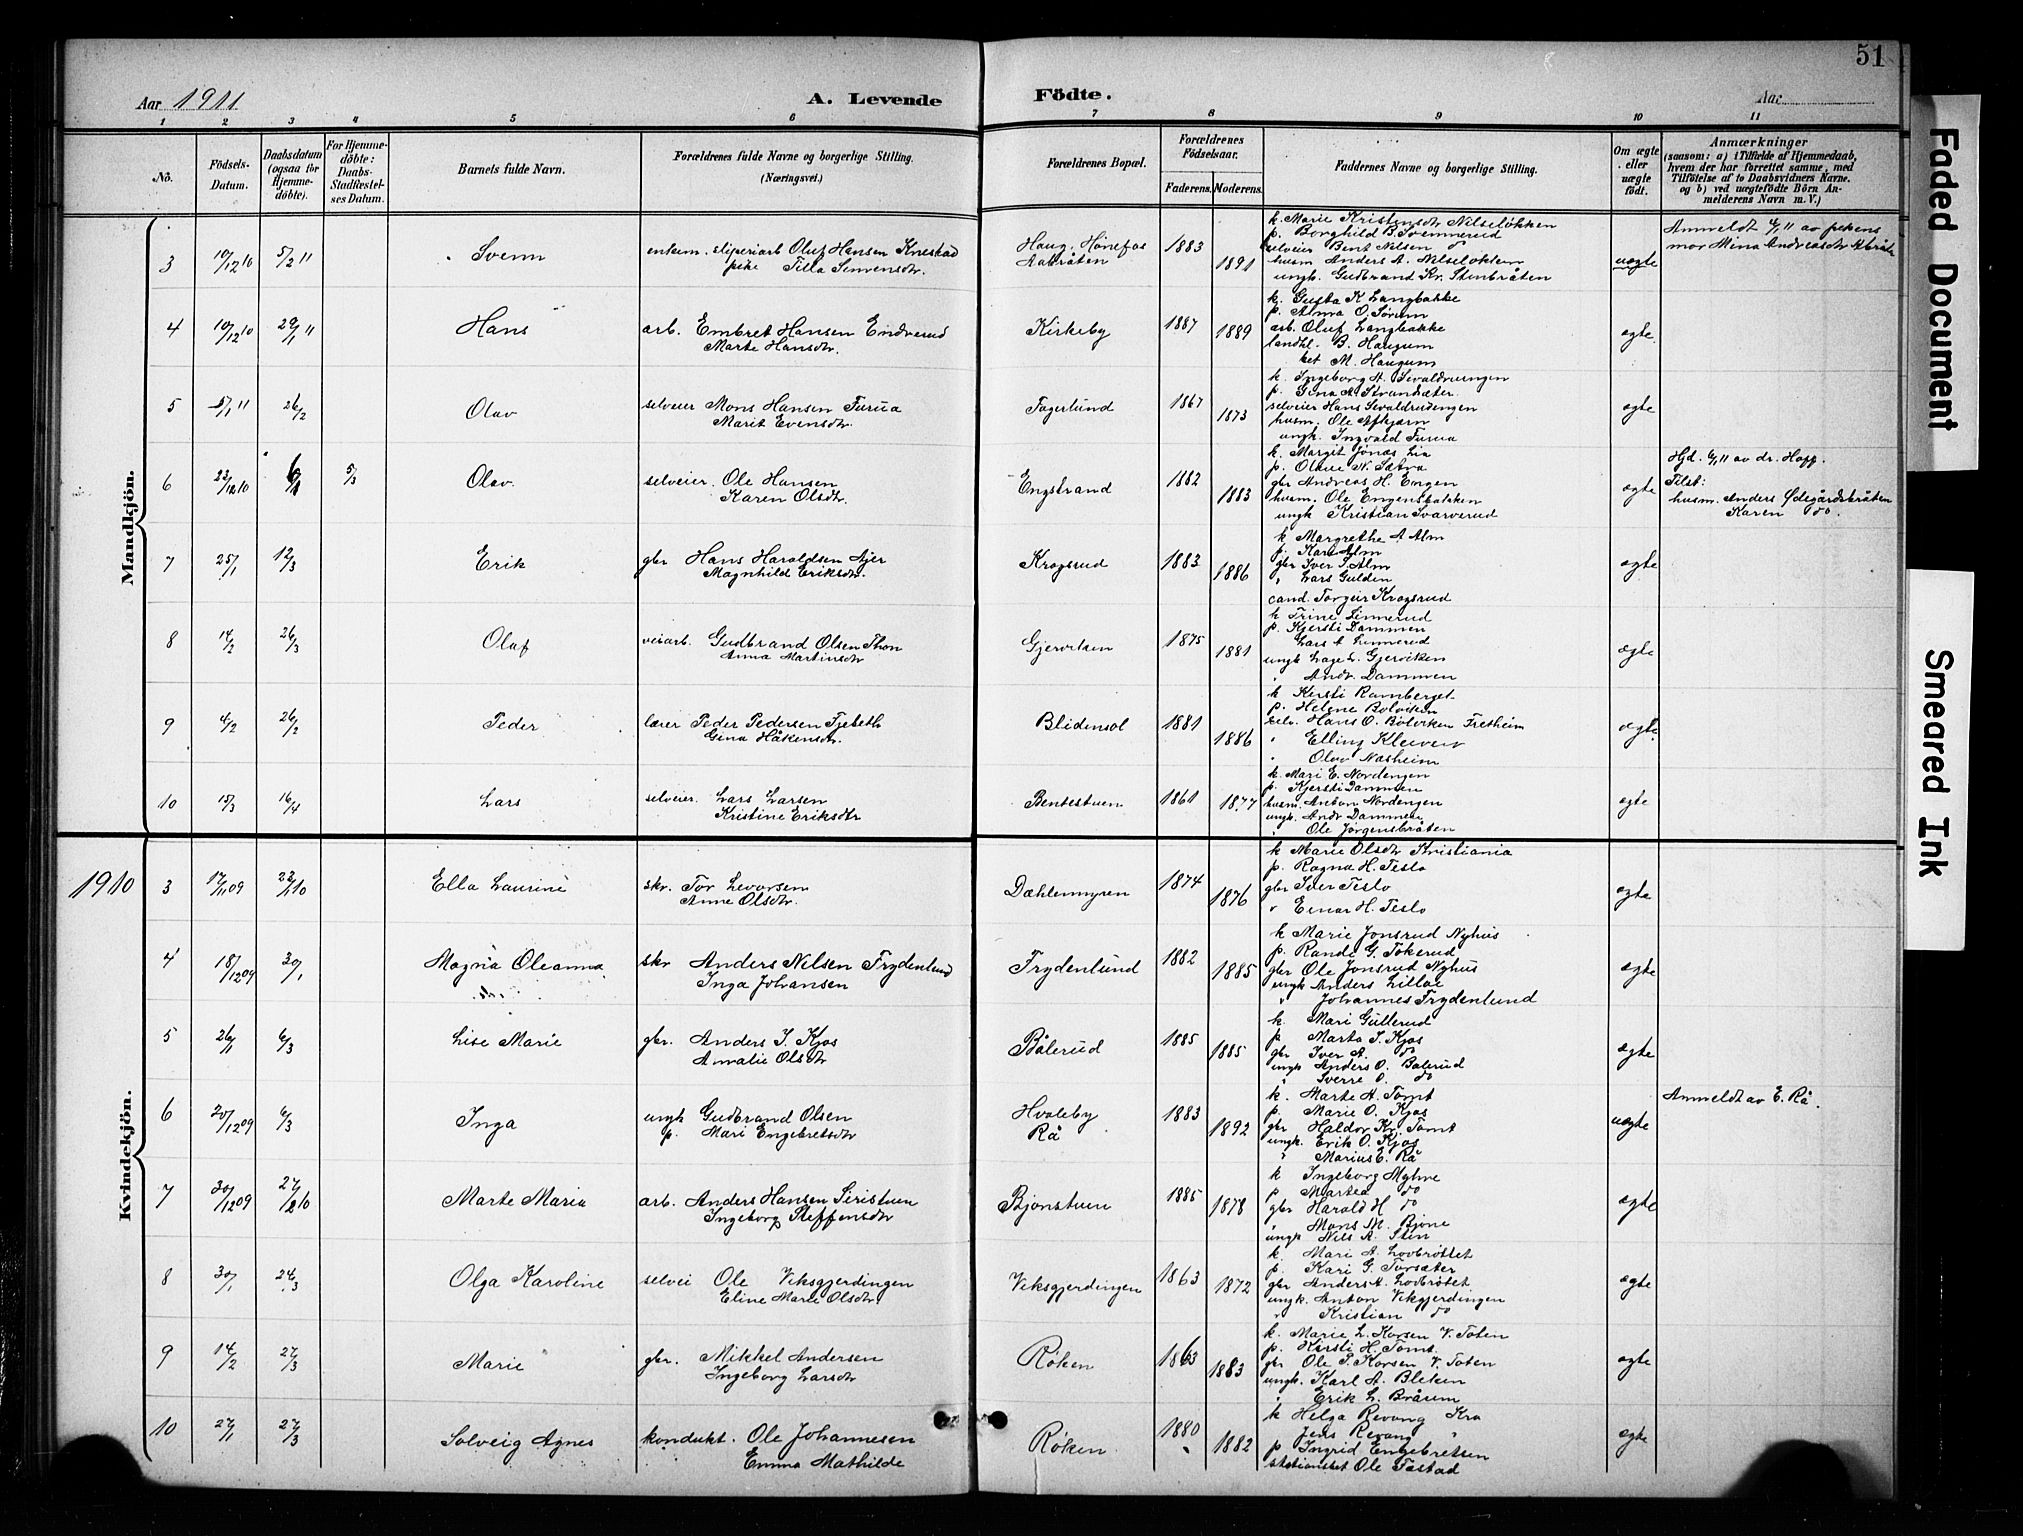 51
Aar 1911
A. Levende
Födte.
Aar
1 2 3 4 5 6 7 8 9 10 11
No.
Födsels-Datum.
Daabsdatum (ogsaa for Hjemmedöbte).
For Hjemmedöbte: Daabs-Stadfæstelses Datum.
Barnets fulde Navn.
Forældrenes fulde Navne og borgerlige Stilling. (Næringsvei.)
Forældrenes Bopæl.
Forældrenes Födselsaar.
Faderens. Moderens.
Faddernes Navne og borgerlige Stilling.
Om ægte eller uægte födt.
Anmærkninger
(saasom: a) i Tilfælde af Hjemmedaab, hvem der har forrettet samme, med Tilföielse af to Daabsvidners Navne, og b) ved uægtefödte Börn Anmelderens Navn m. V.)
Mandkjön.
3 10/12 10 5/2 11 Svenn
enkem. sliperiarb Oluf Hansen Knestad
pike Tilla Simensdtr.
Haug. Hønefos
1883 1891
k. Marie Kristensdtr Nilseløkken
p. Borghild B. Svennerud
selveier Bent Nilsen do
husm Anders A. Nilseløkken
ungk. Gudbrand Kr. Stenbråten
uægte
Anmeldt 4/1 11 av pikens
mor Mina Andreasdtr
4 10/12 10 29/1 11 Hans
arb. Embret Hansen Endrerud
Marte Hansdtr.
Kirkeby
1887 1889
k. Gusta K Langbakke
p. Alma O. Sørum
arb. Oluf Langbakke
landhl. B. Haugum
M. Haugum
ægte.
5 5/1 11 26/2 Olav
selveier Mons Hansen Furua
Marit Evensdtr.
Fagerlund
1867 1873
k. Ingeborg A. Sevaldrudengen
p. Gina A. Strandsæter.
selveier Hans Sevaldrudengen
husm. Ole Afkjærn
ungk. Ingvald Furua
ægte
6 23/12 10 6/1 5/3 Olav.
selveier. Ole Hansen
Karen Olsdtr.
Engstrand
1882 1883
k. Margit Jonas Lia
p. Oline N. Sætra
gbr Andreas H. Engen
husm. Ole Engensbakken
ungk Kristian Svarverud
ægte
Hjd. 6/1 11 av dr. Hopp.
Tilst:
husm. Anders Ødegårdsbråten
Karen do.
7 25/1 12/3 Erik
gbr Hans Haraldsen Ajer
Magnhild Eriksdtr.
Krogsrud
1883 1886
k Margrethe A Alm
p. Kari Alm
gbr Iver I. Alm
" Lars Gulden
cand. Torgeir Krogsrud
ægte
8 14/2 26/3 Olaf
veiarb. Gudbrand Olsen Thon
Anna Martinsdtr
Gjerviken
1875 1881
k Trine Linnerud
p. Kjersti Dammen
Lars A Linnerud
ungk Lage L. Gjerviken
" Andr. Dammen
ægte
9 4/2 26/2 Peder
lærer Peder Pedersen Fjebeth
Gina Håkensdtr.
Blidensol
1881 1886
k Kirsti Ramberget
p. Helene Bolviken
selv. Hans O. Bolviken Fretheim
" Elling Kleiven
" Olav Næsheim
ægte.
10 15/3 16/4 Lars
selveier. Lars Larsen
Kristine Eriksdtr
Bentestuen
1861 1877
k. Mari E. Nordengen
p. Kjersti Dammen
husm. Anton Nordengen
ungk. Andr Dammen
" Ole Jørgensbråten
ægte
1910
Kvindekjön.
3 17/11 09 23/1 10 Ella Laurine
skr. Tor Levorsen
Anne Olsdtr.
Dæhlenmyren
1874 1876
k Marie Olsdtr Kristiania
p. Ragna H. Teslo
gbr Iver Teslo
" Einar H. Teslo
ægte
4 18/12 09 30/1 Magna Oleanna
skr Anders Nilsen Frydenlund
Inga Johansen
Frydenlund
1882 1885
k Marie Jonsrud Nyhus
p. Rande G. Tokerud
gbr Ole Jonsrud Nyhus
ungk Anders Lilloe
" Johannes Frydenlund
ægte
5 26/1 6/3 Lise Marie
gbr. Anders I. Kjos
Amalie Olsdtr
Bålerud
1885 1885
k. Mari Gulterud
p. Marta I. Kjos
gbr Iver A. do
ungk Anders O. Bålerud
" Sverre O. do
ægte
6 20/12 09 6/3 Inga
ungk Gudbrand Olsen
p. Mari Engebretsdtr
Hvaleby
Rå
1883 1892
k. Marte A. Tomt
p. Marie O. Kjos
gbr Haldor Kr. Tomt
ungk. Erik O. Kjos
" Marius E. Rå
uægte
Anmeldt av E. Rå.
7 30/12 09 27/2 10 Marte Maria
arb. Anders Hansen Siristuen
Ingeborg Steffensdtr
Bjonstuen
1885 1878
k Ingeborg Myhre
p Martea do
gbr Harald H do
" Mons M. Bjone
ungk Nils A. Sten
ægte
8 30/1 24/3 Olga Karoline
selvei Ole Viksgjerdingen
Eline Marie Olsdtr.
Viksgjerdingen
1863 1872
k. Mari A. Lovbrøttet
p. Kari G. Torsæter
gbr Anders A. Lovbrøtet
ungk. Anton Vikgjerdingen
" Kristian do
ægte
9 14/2 27/3 Marie
gbr. Mikkel Andersen
Ingeborg Larsdtr
Røken
1863 1883
k. Marie L. Korsen V. Toten
p. Kirsti H. Tomt.
gbr Ole P. Korsen V. Toten
ungk. Karl A. Bleken
" Erik L. Bråum
ægte
10 27/1 27/3 Solveig Agnes
kondukt. Ole Johannesen
Emma Mathilde
Røken.
1880 1882
k Helga Revang Kra
Jens Revang "
p. Ingrid Engebretsen
stationsbet Ole Fostad
ægte
Faded Document
Smeared Ink